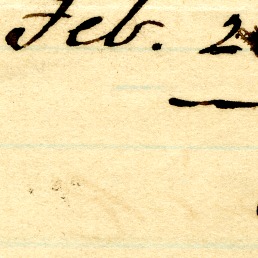 Feb. 2